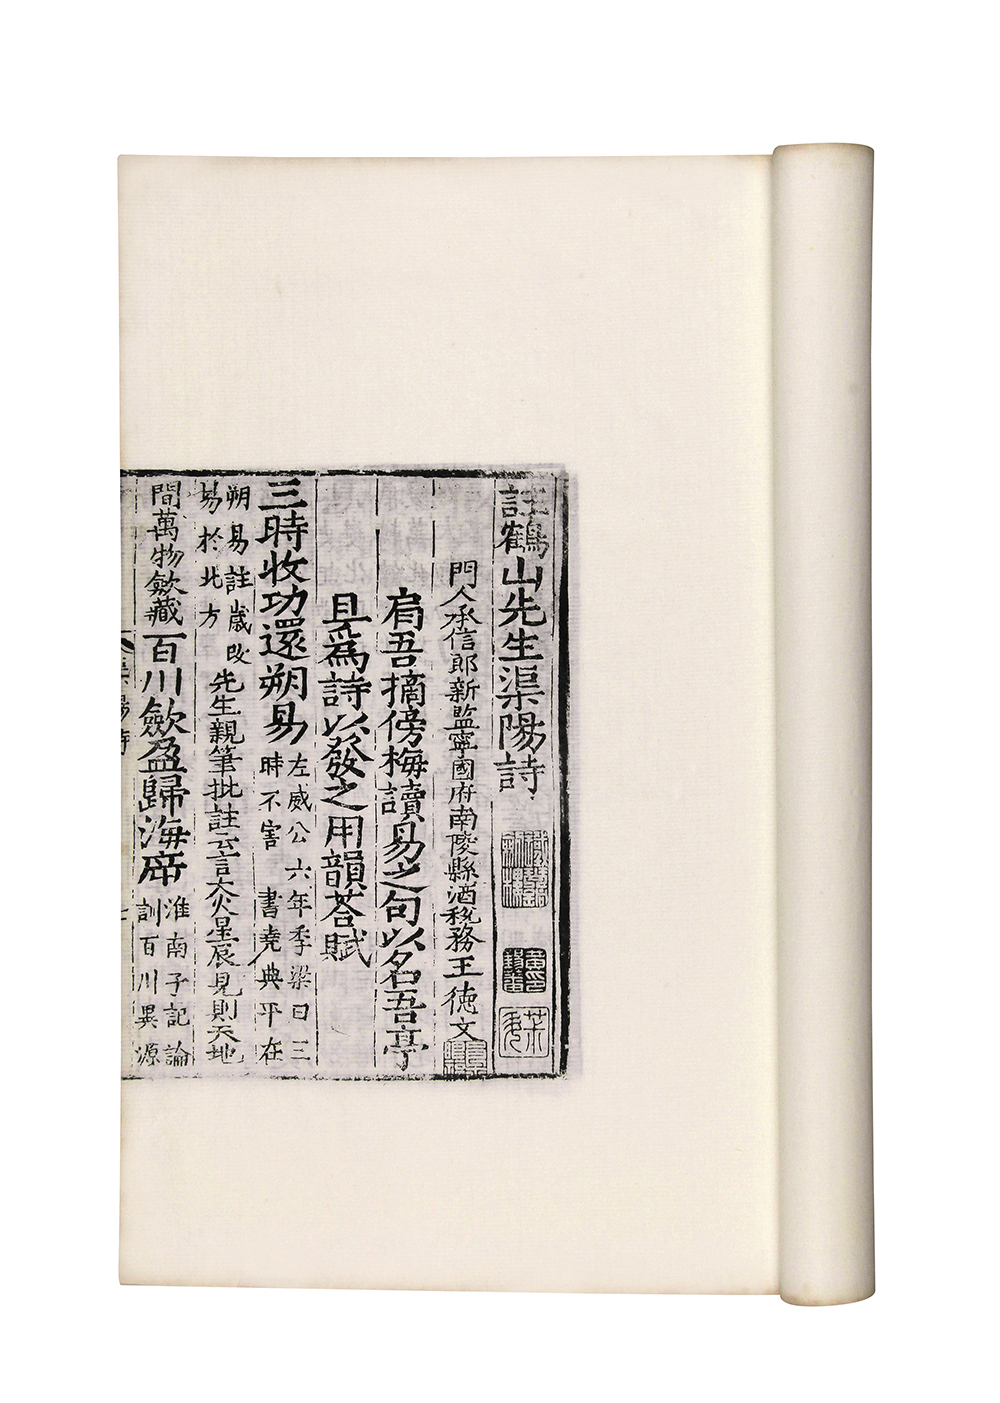 註鶴山先生渠陽詩
門人承信郎新監寧國府南陵縣酒稅務王德文
肩吾摘傍梅讀易之句以名吾亭
且為詩以發之用韻荅賦
三時收功還朔易
左威公六年季梁曰三
時不害 書堯典平在
朔易註歲改
易於北方
先生親筆批註云言大火星辰見則天地
間萬物歛藏
百川歛盈歸海席
淮南子記論
訓百川異源